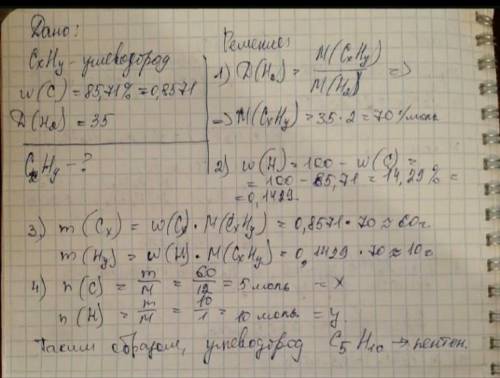 Дано:
CxHy - углеводород
w(C) = 85,71% = 0,8571
D(H2) = 35
CxHy - ?
Решение:
1) D(H2) = M(CxHy) / M(H2) =>
=> M(CxHy) = 35 · 2 = 70 г/моль
2) w(H) = 100 - w(C) =
= 100 - 85,71 = 14,29% =
= 0,1429.
3) m(Cx) = w(C) · M(CxHy) = 0,8571 · 70 ≈ 60г.
m(Hy) = w(H) · M(CxHy) = 0,1429 · 70 ≈ 10г
4) n(C) = m/M = 60/12 = 5 моль = x
n(H) = m/M = 10/1 = 10 моль = y.
Таким образом, углеводород C5H10 → пентен.